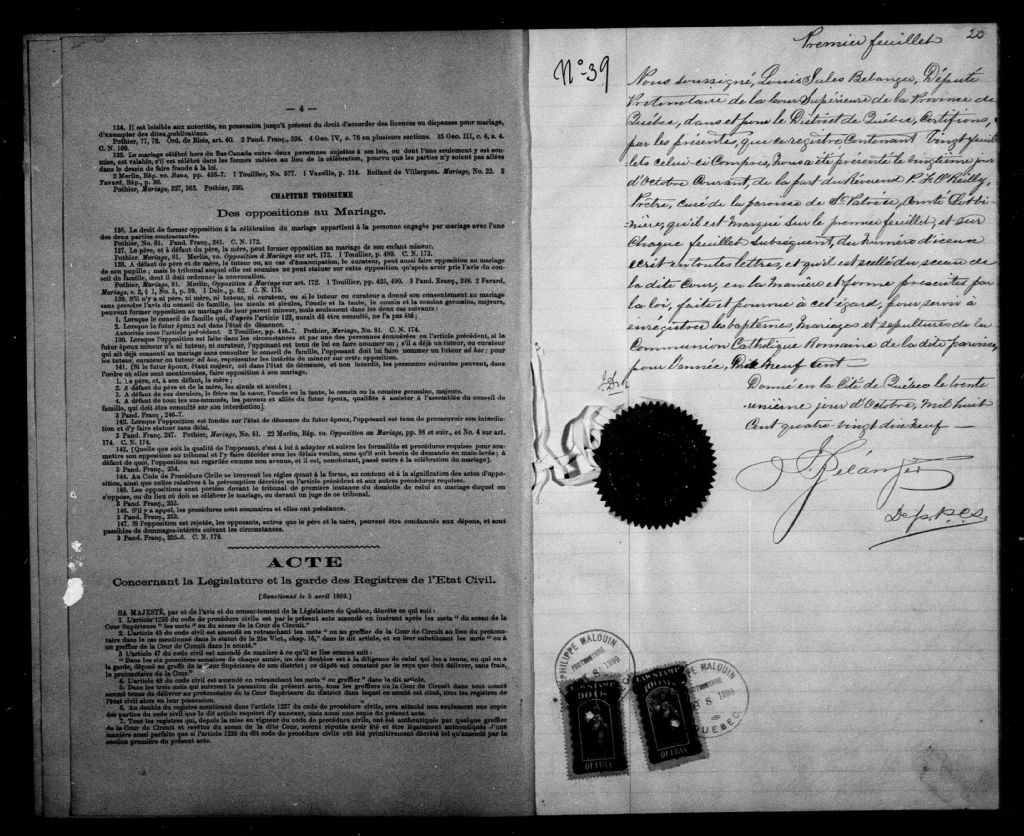 — 4 —
134. Il est loisible aux autorités, en possession jusqu'à présent du droit d'accorder des licences ou dispenses pour mariage,
d'exempter des dites publications.
Pothier, 77, 78. Ord. de Blois, art. 40. 2 Pand. Franç., 294. 4 Geo. IV, c. 76 en plusieurs sections. 35 Geo. III, c. 4, s. 4.
C. N. 169.
135. Le mariage célébré hors du Bas-Canada entre deux personnes sujettes à ses lois, ou dont l'une seulement y est sou-
mise, est valable, s'il est célébré dans les formes usitées au lieu de la célébration, pourvu que les parties n'y soient pas allées
dans le dessin de faire fraude à la loi.
2 Merlin, Rép. vo. Bans, pp. 436-7. 1 Touillier, No. 577. 1 Vazeille, p. 314. Rolland de Villargues. Mariage, No. 22. 3
Favard, Rép., p. 30.
Pothier, Mariage, 327, 363. Pothier, 390.
CHAPITRE TROISIÈME
Des oppositions au Mariage.
136. Le droit de former opposition à la célébration du mariage appartient à la personne engagée par mariage avec l'une
des deux parties contractantes.
Pothier, No. 81. Pand. Franç., 241. C. N. 172.
137. Le père, et à défaut du père, la mère, peut former opposition au mariage de son enfant mineur.
Pothier, Mariage, 81. Merlin, vo. Opposition à Mariage sur art. 173. 1 Touillier, p. 489. C. N. 173.
138. A défaut de père et de mère, le tuteur ou, au cas d'émancipation, le curateur, peut aussi faire opposition au mariage
de son pupille ; mais le tribunal auquel elle est soumise ne peut statuer sur cette opposition qu'après avoir pris l'avis du con-
seil de famille, dont il doit ordonner la convocation.
Pothier, Mariage, 81. Merlin, Opposition à Mariage sur art. 172. 1 Touillier, pp. 425, 490. 3 Pand. Franç., 248. 2 Favard,
Mariage, s. 2, § 1, No. 3, p. 59. 1 Delv., p. 62. C. N. 175.
139. S'il n'y a ni père, ni mère, ni tuteur, ni curateur, ou si le tuteur ou curateur a donné son consentement au mariage
sans prendre l'avis du conseil de famille, les aïeuls et aïeules, l'oncle et la tante, le cousin et la cousine germains, majeurs,
peuvent former opposition au mariage de leur parent mineur, mais seulement dans les deux cas suivants :
1. Lorsque le conseil de famille qui, d'après l'article 122, aurait dû être consulté, ne l'a pas été ;
2. Lorsque le futur époux est dans l'état de démence.
Autorités sous l'article précédent. 2 Touillier, pp. 416-7. Pothier, Mariage, No. 81. C. N. 174.
130. Lorsque l'opposition est faite dans les circonstances et par une des personnes énumérées en l'article précédent, si le
futur époux mineur n'a ni tuteur, ni curateur, l'opposant est tenu de lui en faire nommer un ; s'il a déjà un tuteur, ou curateur
qui ait déjà consenti au mariage sans consulter le conseil de famille, l'opposant doit lui faire nommer un tuteur ad hoc ; pour
les tuteur, curateur ou tuteur ad hoc, représenter les intérêts du mineur sur cette opposition.
141. [Si le futur époux, étant majeur, est dans l'état de démence, et non interdit, les personnes suivantes peuvent, dans
l'ordre où elles sont mentionnées, faire opposition à son mariage.
1. Le père, et, à son défaut, la mère ;
2. A défaut du père et de la mère, les aïeuls et aïeules ;
3. A défaut de ces derniers, le frère ou la sœur, l'oncle ou la tante, le cousin ou la cousine germains, majeurs.
4. A défaut de tous les sus-nommés, les parents et alliés du futur époux, qualifiés à assister à l'assemblée du conseil de
famille, qui doit être consulté sur son interdiction].
3 Pand. Franç., 246-7.
142. Lorsque l'opposition est fondée sur l'état de démence du futur époux, l'opposant est tenu de promouvoir son interdic-
tion et d'y faire statuer sans délai.
3 Pand. Franç. 247. Pothier, Mariage, No. 81. 22 Merlin, Rép. vo. Opposition au Mariage, pp. 88 et suiv., et No. 4 sur art.
174. C. N. 174.
143. [Quelque que soit la qualité de l'opposant, c'est à lui à adopter et suivre les formalités et procédures requises pour sou-
mettre son opposition au tribunal et l'y faire décider sous les délais voulus, sans qu'il soit besoin de demande en main-levée ; à
défaut de quoi, l'opposition est regardée comme non avenue, et il est, nonobstant, passé outre à la célébration du mariage].
3 Pand. Franç., 254.
144. Au Code de Procédure Civile se trouvent les règles quant à la forme, au contenu et à la signification des actes d'oppo-
sition, ainsi que celles relatives à la préremption décrétée en l'article précédent et aux autres procédures requises.
145. Les oppositions sont portées devant le tribunal de première instance du domicile de celui au mariage duquel on
s'oppose, ou du lieu où doit se célébrer le mariage, ou devant un juge de ce tribunal.
3 Pand. Franç., 253.
146. S'il y a appel, les procédures sont sommaires et elles ont préséance.
3 Pand. Franç., 253.
147. Si l'opposition est rejetée, les opposants, autres que le père et la mère, peuvent être condamnés aux dépens, et sont
passibles de dommages-intérêts suivant les circonstances.
3 Pand. Franç., 255-6. C. N. 179.
ACTE
Concernant la Législature et la garde des Registres de l'Etat Civil.
[Sanctionné le 5 avril 1869.]
SA MAJESTÉ, par et de l'avis et du consentement de la Législature de Québec, décrète ce qui suit :
1. L'article 1236 du code de procédure civile est par le présent acte amendé en insérant après les mots " du sceau de la
Cour Supérieure " les mots " ou du sceau de la Cour de Circuit."
2. L'article 45 du code civil est amendé en retranchant les mots " ou au greffier de la Cour de Circuit au lieu du protono-
taire dans le cas mentionné dans le statut de la 25e Vict., chap. 16," dans le dit article, et en leur substituant les mots " ou à
un greffier de la Cour de Circuit dans le comté."
3 L'article 47 du code civil est amendé de manière à ce qu'il se lise comme suit :
" Dans les six premières semaines de chaque année, un des doubles est à la diligence de celui qui les a tenus, ou qui en a
la garde, déposé au greffe de la Cour Supérieure de son district ; ce dépôt est constaté par le reçu que doit délivrer, sans frais,
le protonotaire de la Cour."
4. L'article 48 du code civil est amendé en retranchant les mots " ou greffier " dans le dit article.
5. Dans les trois mois qui suivront la passation du présent acte, tous les greffiers de la Cour de Circuit dans tout comté
seront tenus de délivrer au protonotaire de la Cour Supérieure du district dans lequel ce comté est situé, tous les registres de
l'état civil alors en leur possession.
6. Au double du registre mentionné dans l'article 1237 du code de procédure civile, sera attaché non seulement une copie
des parties du code civil que le dit article requiert d'y annexer, mais aussi une copie du présent acte.
7. Tous les registres qui, depuis la mise en vigueur du code de procédure civile, ont été authentiqués par quelque greffier
de la Cour de Circuit et revêtus du sceau de la dite Cour, seront réputés avoir été et être légalement authentiquées d'une
manière aussi parfaite que si l'article 1236 du dit code de procédure civile eût été primitivement décrété tel qu'amendé par la
section première du présent acte.
20
Premier feuillet
No 39
Nous soussigné, Louis Jules Belanger, Député
Protonotaire de la Cour Supérieure de la Province de
Québec, dans et pour le District de Québec, Certifions,
par les présentes, que ce registre Contenant Vingt feuil
lets celui-ci Compris, Nous a été présenté le Vingtième jour
d'Octobre Courant, de la part du Révérend P. J. O'Reilly,
Prêtre, curé de la paroisse de St Patrice, Comté Lotbi-
nière, qu'il est marqué sur le premier feuillet, et sur
Chaque feuillet subséquent, du numéro d'iceux
écrit en toutes lettres, et qu'il est scellé du sceau de
la dite Cour, en la manière et forme prescrites par
la loi, faite et pourvue à cet égard, pour servir à
enregistrer les baptêmes, Mariages et sepultures de la
Communion Catholique Romaine de la dite paroisse,
pour l'année, Mil Neuf Cent —
Donné en la Cité de Québec le trente
unième jour d'Octobre, Mil huit
Cent quatre-vingt dix neuf —
J. Belanger
Dep. P.C.S.
PHILIPPE MALOUIN
PROTONOTAIRE
8 1899
PPE MALOUIN
PROTONOTAIRE
8 1899
QUEBEC
LAW STAMP
QUEBEC
QUEBEC